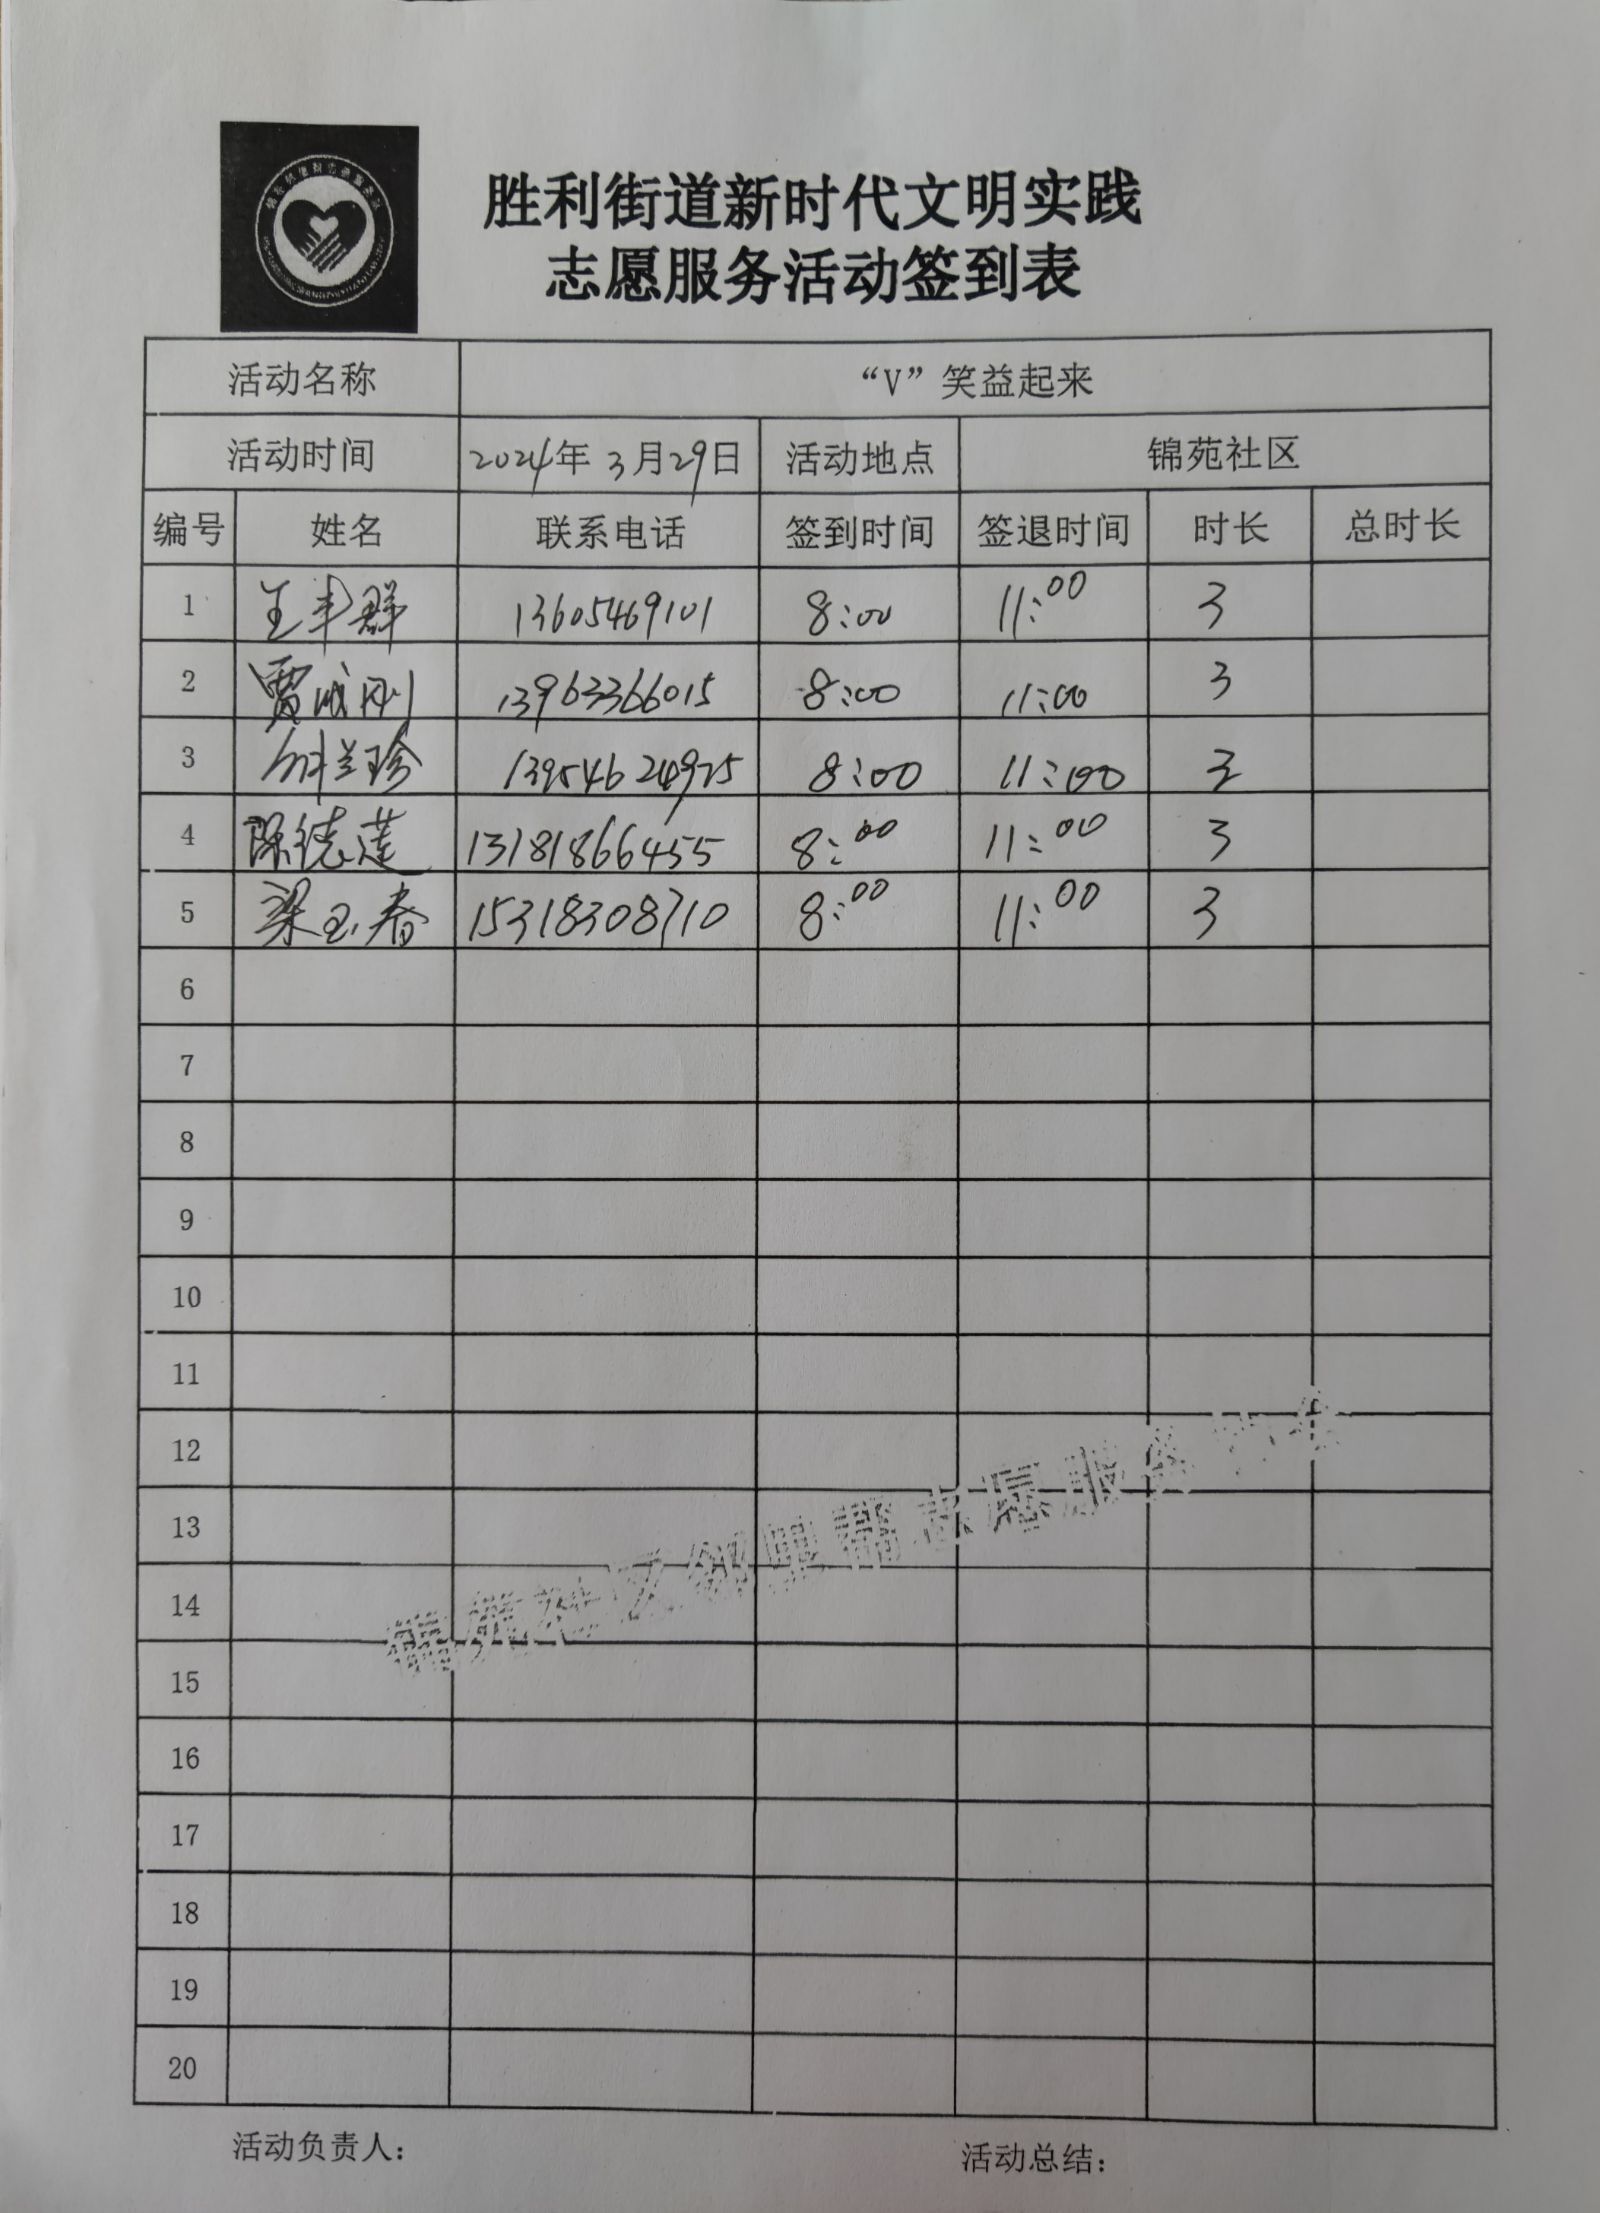 胜利街道新时代文明实践
志愿服务活动签到表
活动名称 “V”笑益起来
活动时间 2024年 3月29日 活动地点 锦苑社区
编号 姓名 联系电话 签到时间 签退时间 时长 总时长
1 王丰群 13605469101 8:00 11:00 3
2 贾成刚 13963366015 8:00 11:00 3
3 兰珍 13954624975 8:00 11:00 3
4 陈德莲 13181866455 8:00 11:00 3
5 梁玉春 15318308710 8:00 11:00 3
6
7
8
9
10
11
12
13
14
15
16
17
18
19
20
锦苑社区邻里帮志愿服务协会
活动负责人：
活动总结：